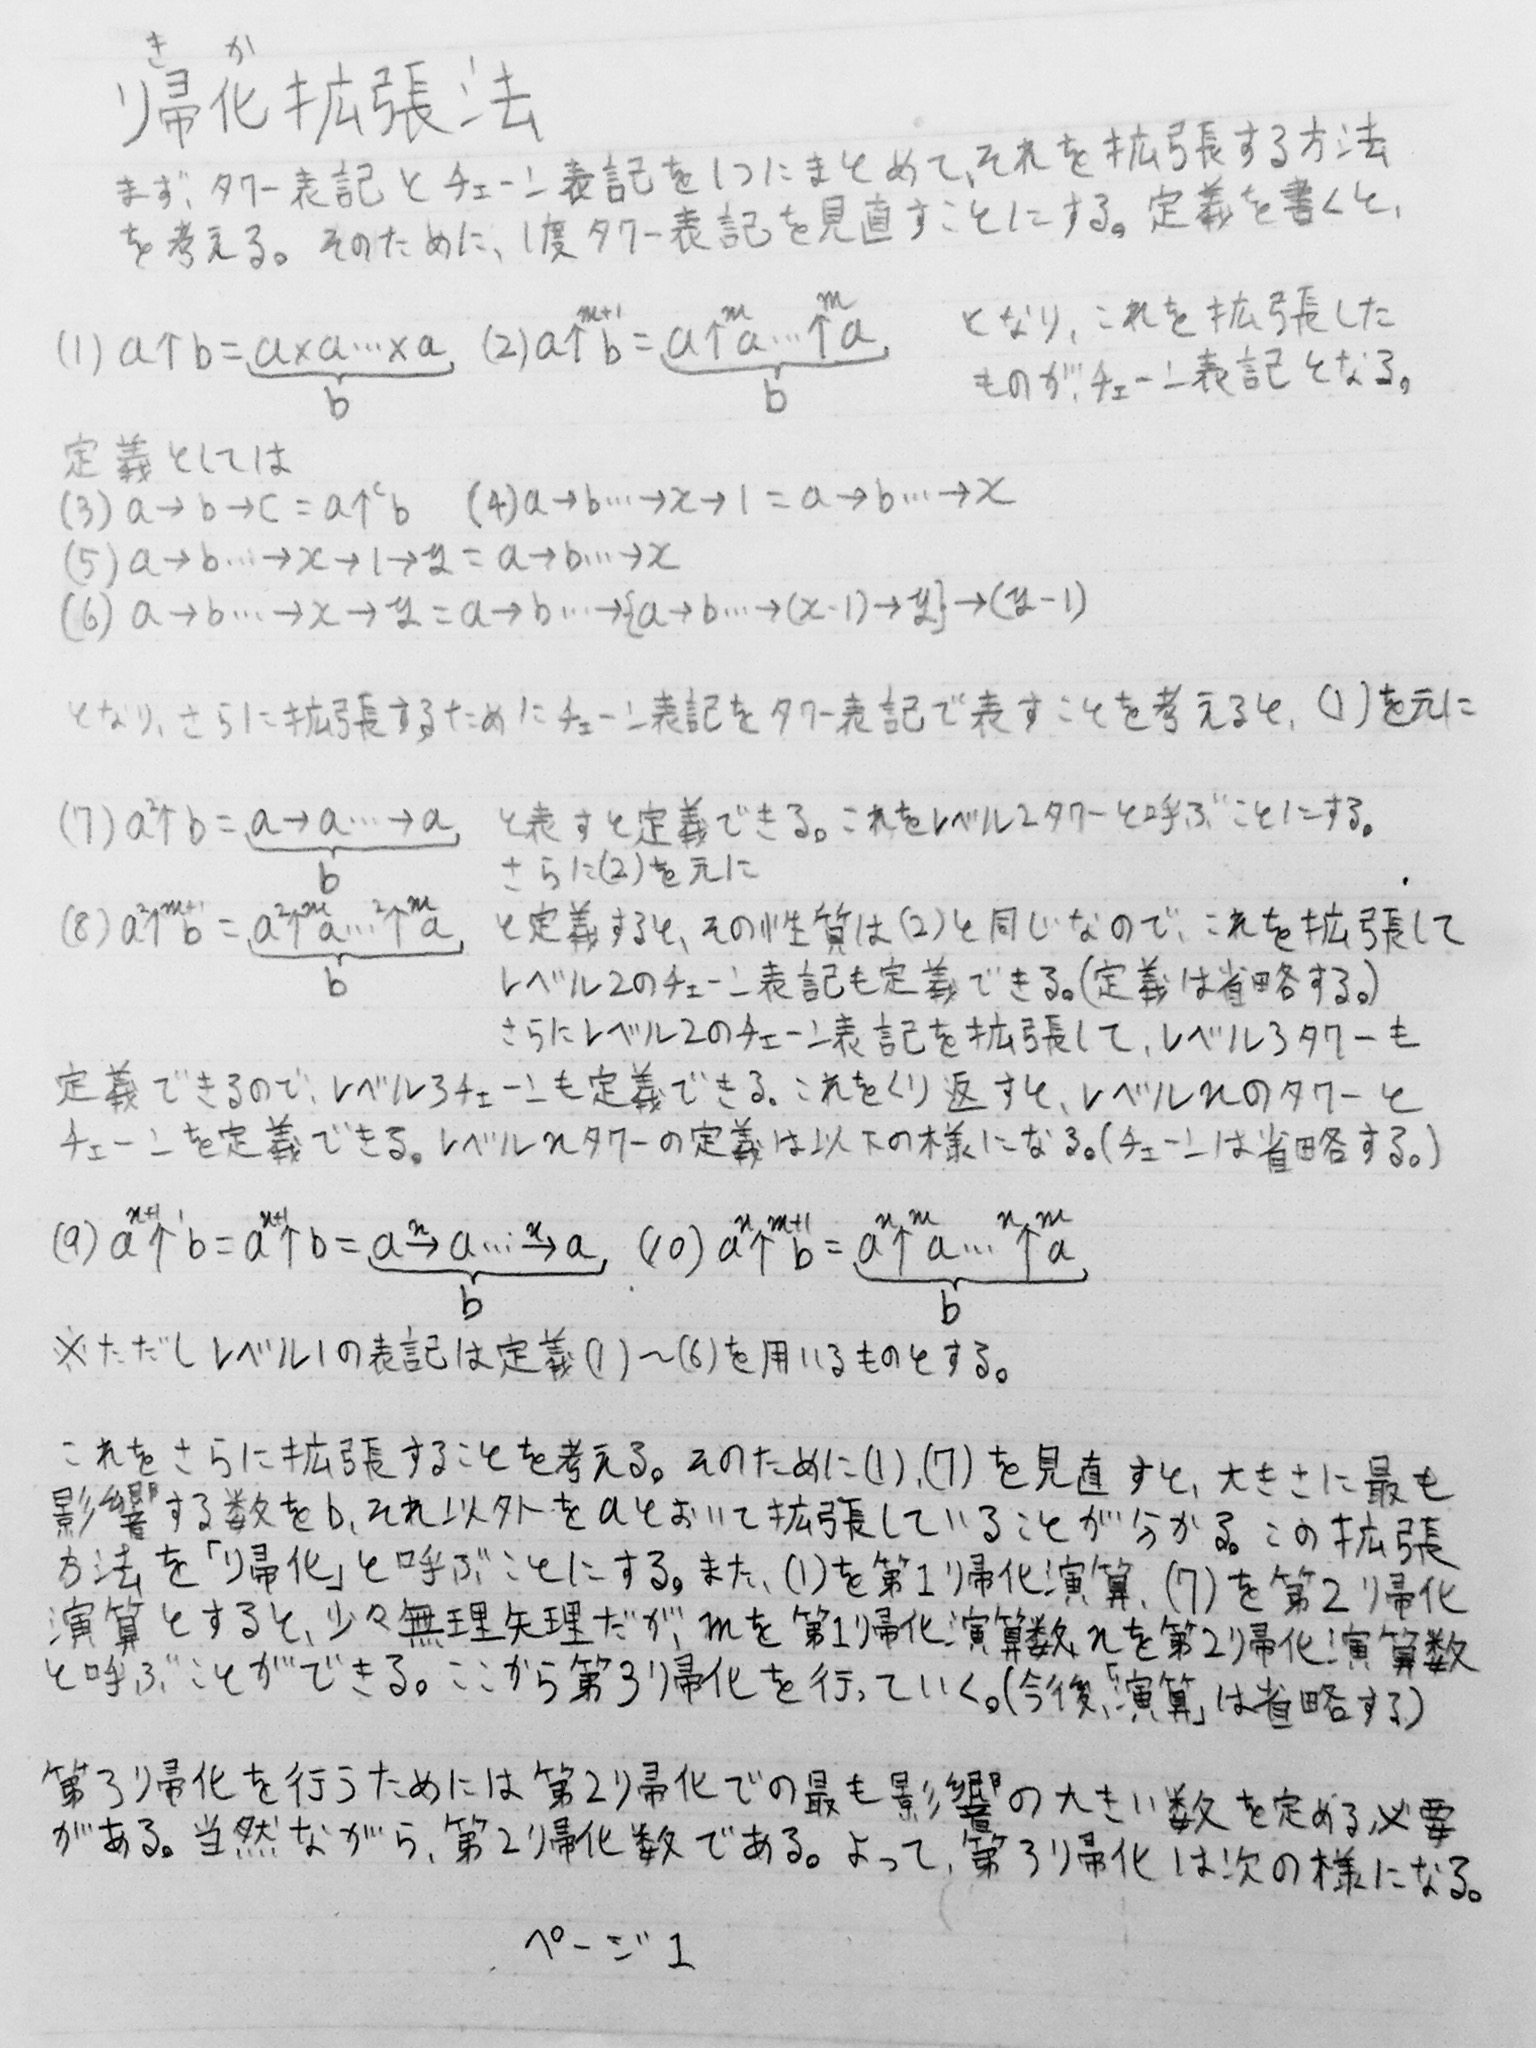 きか
帰化拡張法
まず、タワー表記とチェーン表記を1つにまとめて、それを拡張する方法
を考える。そのために、1度タワー表記を見直すことにする。定義を書くと、
(1) a↑b = a×a…×a (2) a↑^{m+1}b = a↑^{m}a…↑^{m}a となり、これを拡張した
b b ものが、チェーン表記となる。
定義としては
(3) a→b→c = a↑^{c}b (4) a→b…→x→1 = a→b…→x
(5) a→b…→x→1→y = a→b…→x
(6) a→b…→x→y = a→b…→{a→b…→(x-1)→y}→(y-1)
となり、さらに拡張するためにチェーン表記をタワー表記で表すことを考えると、(1)を元に
(7) a ^{2}↑b = a→a…→a と表すと定義できる。これをレベル2タワーと呼ぶことにする。
b さらに(2)を元に
(8) a ^{2}↑^{m+1}b = a ^{2}↑^{m}a… ^{2}↑^{m}a と定義すると、その性質は(2)と同じなので、これを拡張して
b レベル2のチェーン表記も定義できる。(定義は省略する。)
さらにレベル2のチェーン表記を拡張して、レベル3タワーも
定義できるので、レベル3チェーンも定義できる。これをくり返すと、レベルnのタワーと
チェーンを定義できる。レベルnタワーの定義は以下の様になる。(チェーンは省略する。)
(9) a ^{n+1}↑^{1}b = a ^{n+1}↑b = a ^{n}→a… ^{n}→a (10) a ^{n}↑^{m+1}b = a ^{n}↑^{m}a… ^{n}↑^{m}a
b b
※ただしレベル1の表記は定義(1)〜(6)を用いるものとする。
これをさらに拡張することを考える。そのために(1),(7)を見直すと、大きさに最も
影響する数をb、それ以外をaとおいて拡張していることが分かる。この拡張
方法を「帰化」と呼ぶことにする。また、(1)を第1帰化演算、(7)を第2帰化
演算とすると、少々無理矢理だが、mを第1帰化演算数、nを第2帰化演算数
と呼ぶことができる。ここから第3帰化を行っていく。(今後、「演算」は省略する)
第3帰化を行うためには第2帰化での最も影響の大きい数を定める必要
がある。当然ながら、第2帰化数である。よって、第3帰化は次の様になる。
ページ1